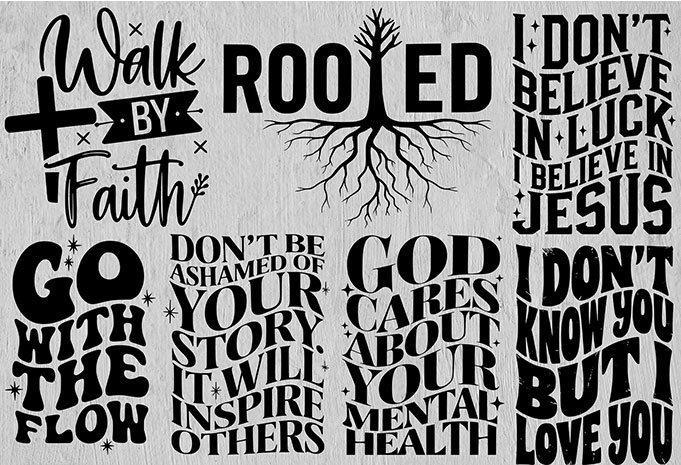 Walk
BY
Faith
ROOTED
I DON'T
BELIEVE
IN LUCK
I BELIEVE IN
JESUS
GO
WITH
THE
FLOW
DON'T BE
ASHAMED OF
YOUR
STORY.
IT WILL
INSPIRE
OTHERS
GOD
CARES
ABOUT
YOUR
MENTAL
HEALTH
I DON'T
KNOW YOU
BUT I
LOVE YOU